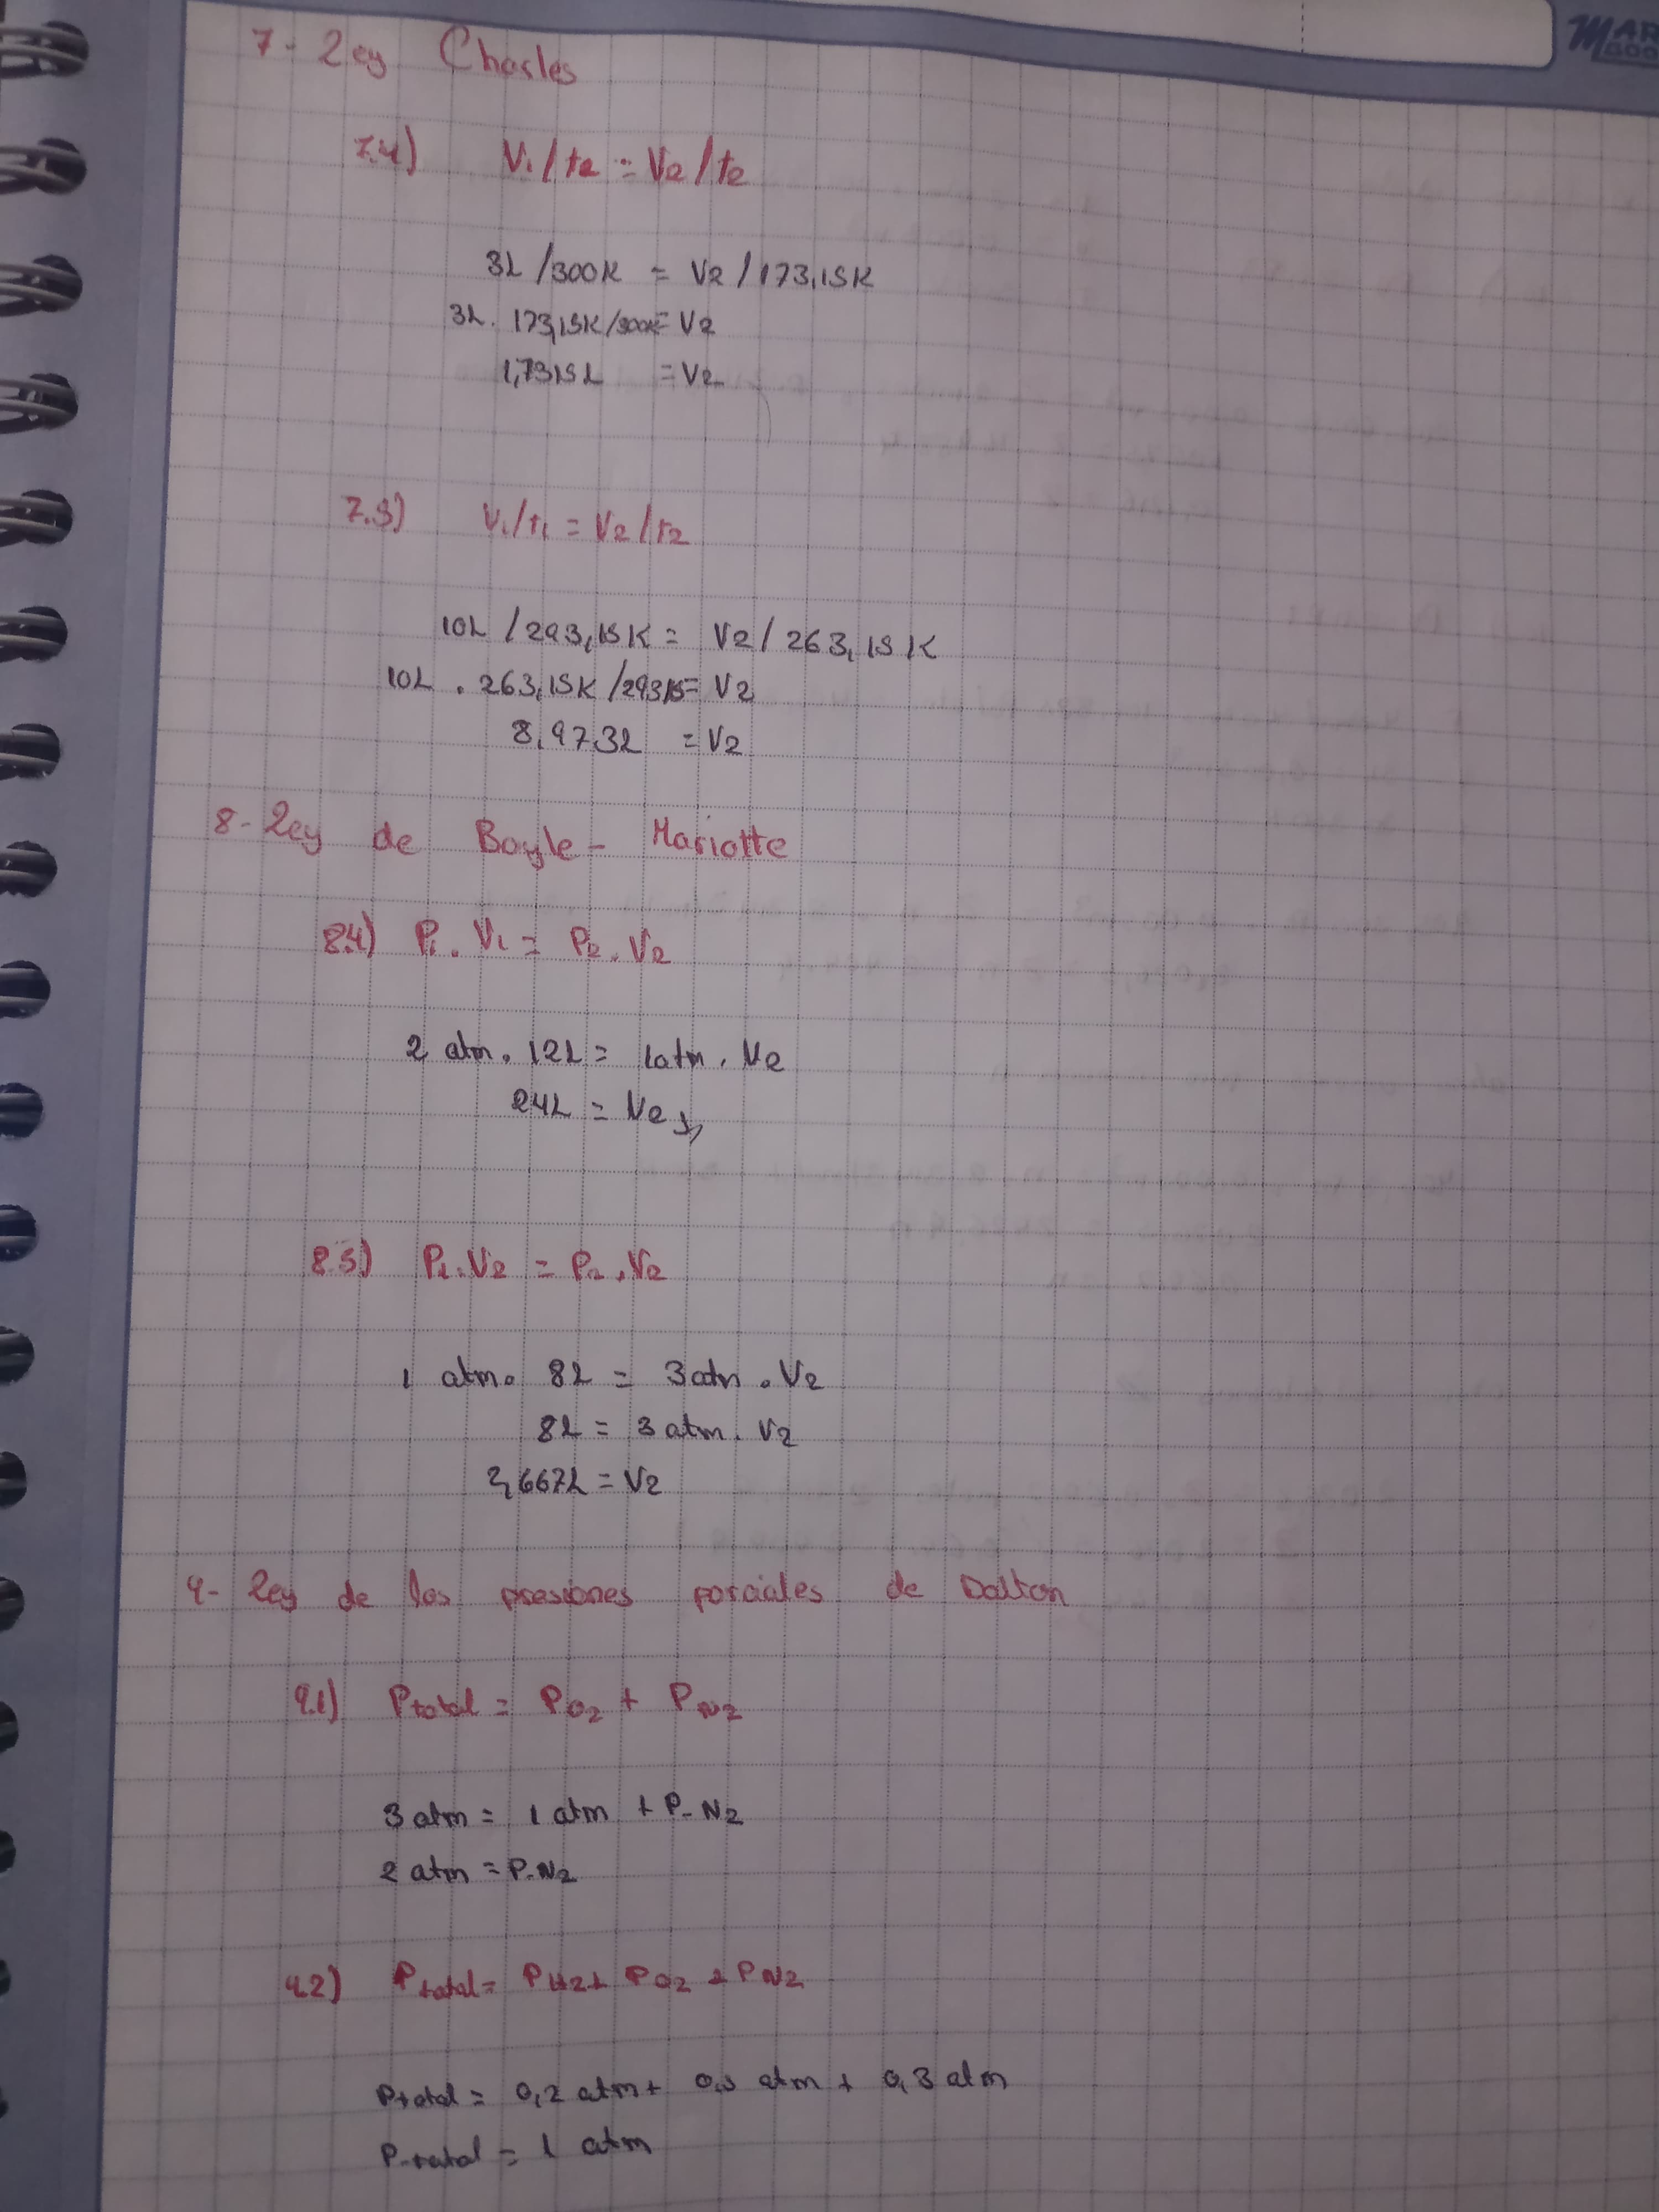 MAR
BOO
7- Ley Charles
7.4) V1/t2 = V2/t2
3L /300K = V2 / 173,15K
3L. 173,15K/300K= V2
1,7315L = V2
7.5) V1/t1 = V2/t2
10L / 293,15K = V2 / 263,15K
10L . 263,15K /293,15= V2
8,973L = V2
8- Ley de Boyle - Mariotte
8.4) P1 . V1 = P2 . V2
2 atm . 12L = 1atm . V2
24L = V2
8.5) P1.V2 = P2 .V2
1 atm . 8L = 3atm . V2
8L = 3 atm . V2
2,667L = V2
9- Ley de las presiones parciales de Dalton
9.1) Ptotal = PO2 + PN2
3 atm = 1 atm + P-N2
2 atm = P-N2
9.2) Ptotal = PH2+ PO2 + PN2
Ptotal = 0,2 atm+ 0,5 atm + 0,3 atm
P-total = 1 atm